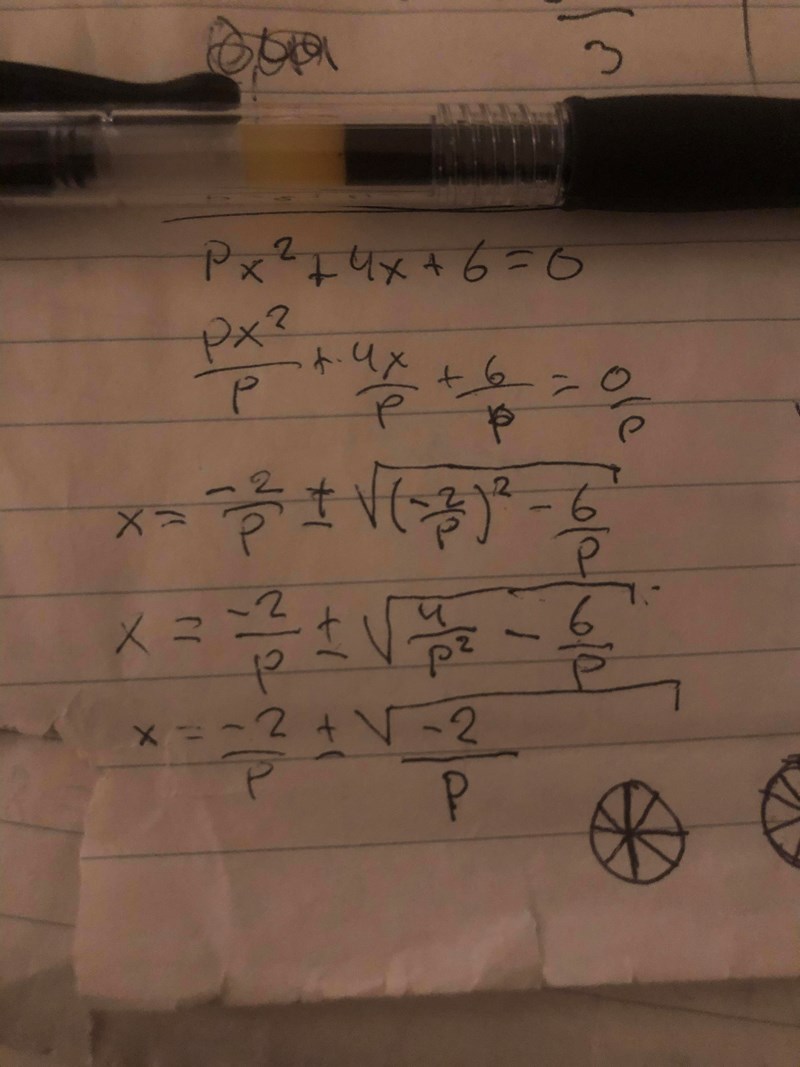 3
Px² + 4x + 6 = 0
px²/p + 4x/p + 6/p = 0/p
x = -2/p ± √((-2/p)² - 6/p)
x = -2/p ± √(4/p² - 6/p)
x = -2/p ± √(-2/p)